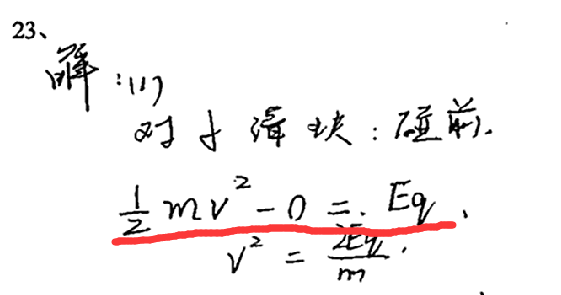 23、
解:(1)
对于滑块:碰前.
½mv²-0=.Eq.
v²=2Eq/m.